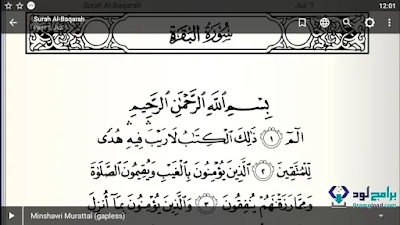 Surah Al-Baqarah Juz' 1 12:01
Surah Al-Baqarah
سُورَةُ البَقَرَةِ
بِسْمِ اللَّهِ الرَّحْمَٰنِ الرَّحِيمِ
الٓمٓ ١ ذَٰلِكَ الْكِتَابُ لَا رَيْبَ فِيهِ هُدًى
لِّلْمُتَّقِينَ ٢ الَّذِينَ يُؤْمِنُونَ بِالْغَيْبِ وَيُقِيمُونَ الصَّلَاةَ
وَمِمَّا رَزَقْنَاهُمْ يُنفِقُونَ ٣ وَالَّذِينَ يُؤْمِنُونَ بِمَا أُنزِلَ
برامج لود
Minshawi Murattal (gapless)